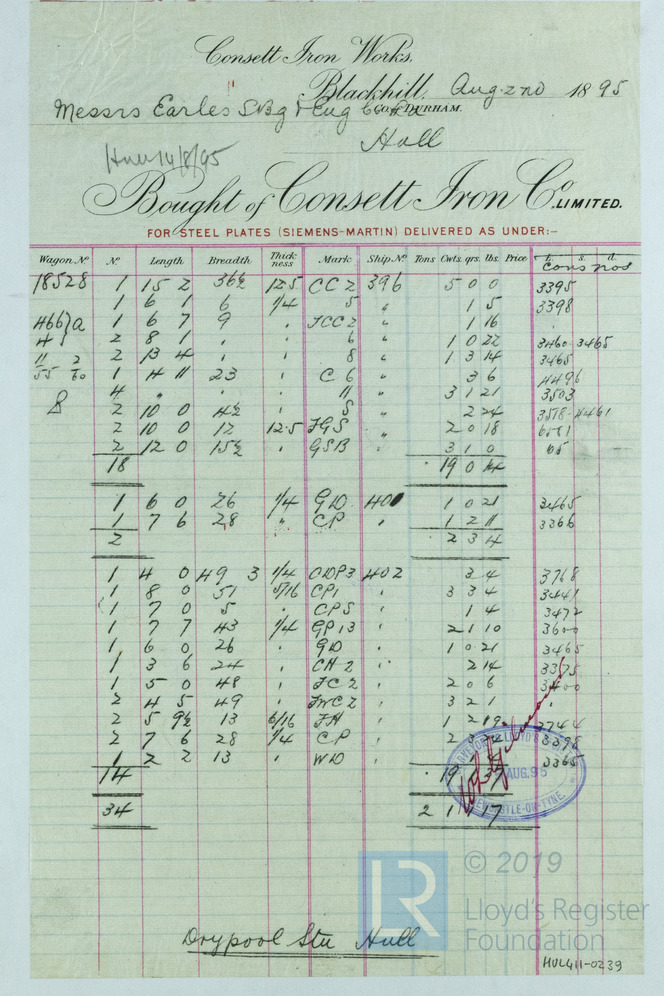 Consett Iron Works,
Blackhill, Aug. 2nd 1895
Co. DURHAM.
Messrs Earles SBg & Eng Co
Hull
Hull 14/8/95
Bought of Consett Iron Co. LIMITED.
FOR STEEL PLATES (SIEMENS-MARTIN) DELIVERED AS UNDER:–
Wagon No. No. Length Breadth Thickness Mark Ship No. Tons Cwts. qrs. lbs. Price £. s. d.
Cons nos
18528 1 15 2 36½ 12.5 CC2 396 5 0 0 3395
1 6 1 6 1/4 5 " 1 5 3398
466}a 1 6 7 9 " JCC2 " 1 16 "
4 2 8 1 " " 6 " 1 0 22 3460-3465
11 2 2 13 4 " " 8 " 1 3 14 3465
55 to 1 4 11 23 " C 6 " 3 6 4496
4 " " " " 11 " 3 1 21 3503
8 2 10 0 4½ " 5 " 2 24 3518-4461
2 10 0 12 12.5 JGS " 2 0 18
2 12 0 15½ " GSB " 3 1 0
18 19 0 14
1 6 0 26 1/4 GD 400 1 0 21 3465
1 7 6 28 " CP " 1 2 11 3366
2 2 3 4
1 4 0 49 3 1/4 CDP3 402 3 4 3768
1 8 0 51 5/16 CP1 " 3 3 4 3441
1 7 0 5 " CPS " 1 4 3472
1 7 7 43 1/4 GP13 " 2 1 10 3600
1 6 0 26 " GD " 1 0 21 3465
1 3 6 24 " CH2 " 2 14 3375
1 5 0 48 " JC2 " 2 0 6 3400
2 4 5 49 " JWC2 " 3 2 1 "
2 5 9½ 13 6/16 JH " 1 2 19 2744
2 7 6 28 1/4 CP " 2 3 3395
1 2 2 13 " WD " 3365
14 19
SURVEYOR TO LLOYD'S
AUG. 95
NEWCASTLE-ON-TYNE.
34 2 1 17
© 2019
LR
Lloyd's Register
Foundation
Drypool Stn Hull
HUL411-0239